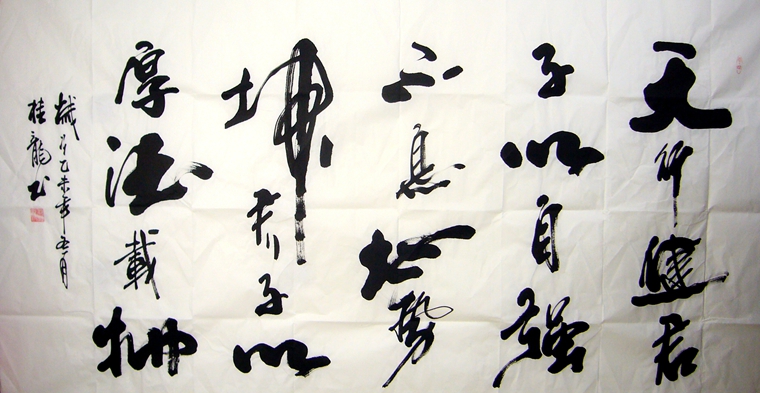 天行健君
子以自強
不息地勢
坤君子以
厚德載物
歲乙未年五月
桂龍书